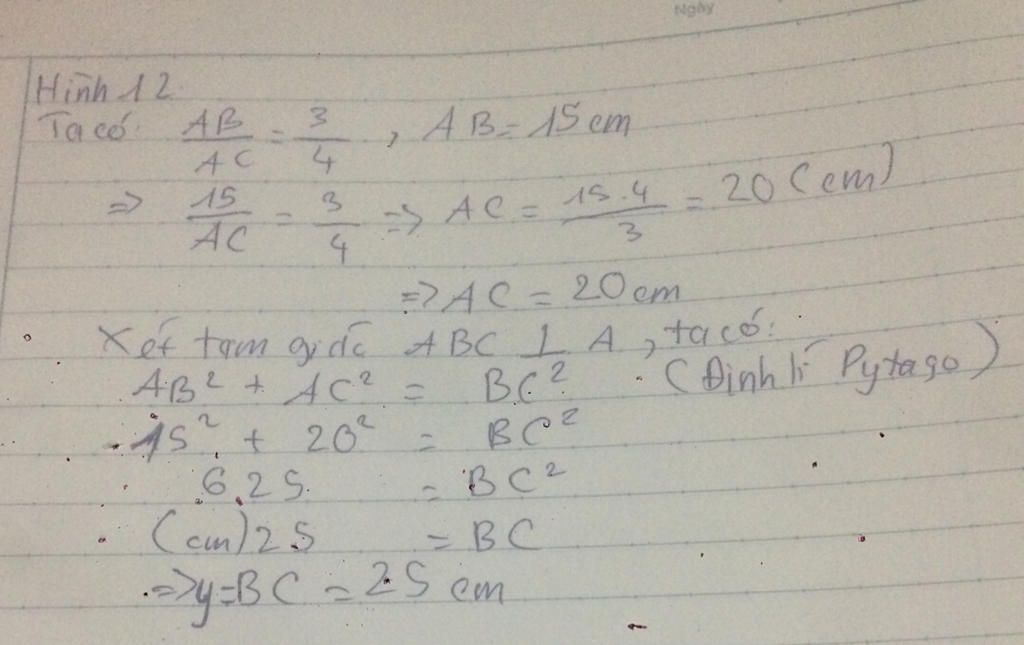 Ngày
Hình 12.
Ta có: AB/AC = 3/4, AB = 15cm
=> 15/AC = 3/4 => AC = 15.4/3 = 20 (cm)
=> AC = 20cm
Xét tam giác ABC ⊥ A, ta có:
AB² + AC² = BC² (Định lí Pytago)
15² + 20² = BC²
625 = BC²
(cm) 25 = BC
=> y = BC = 25 cm